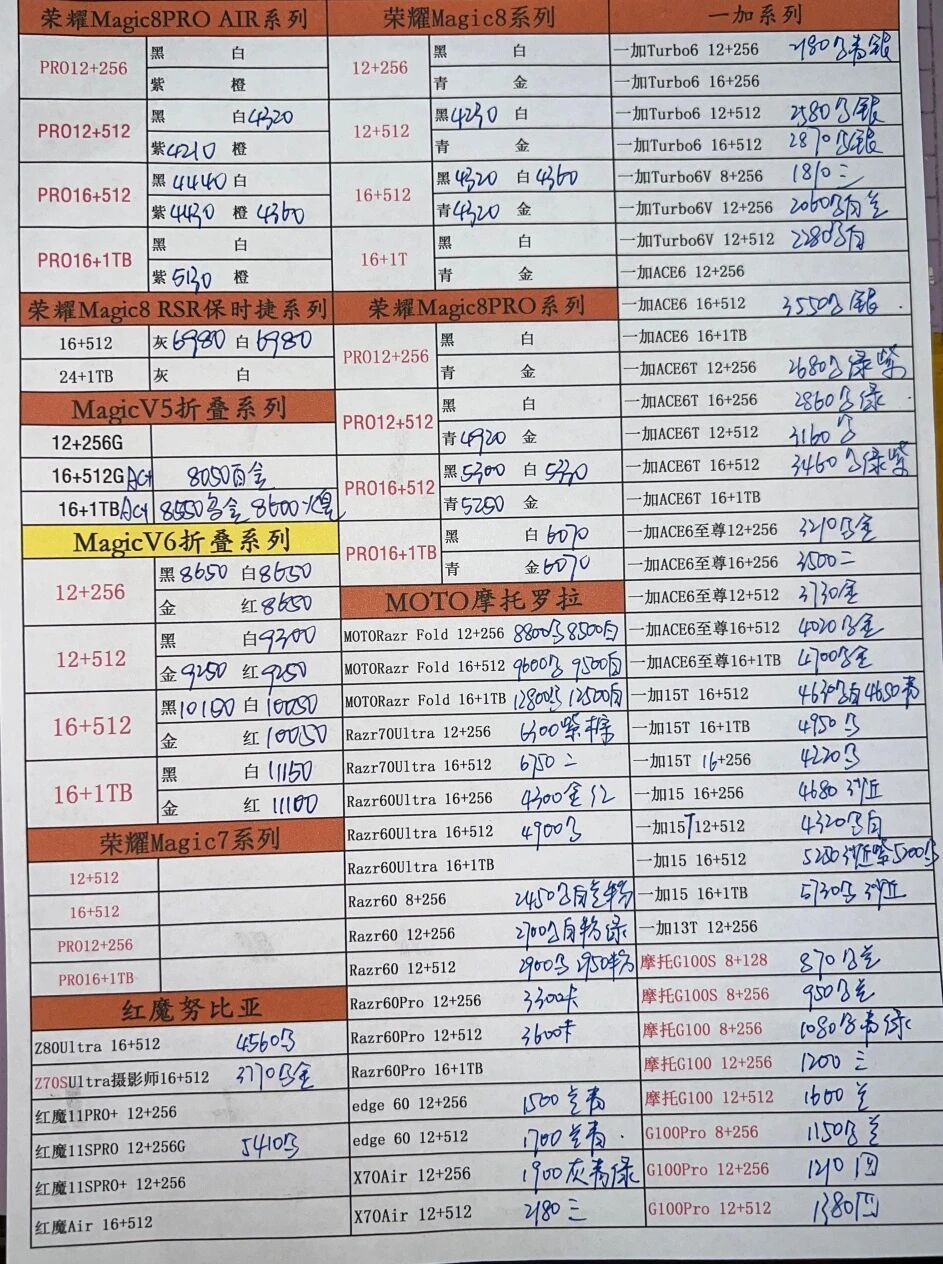 荣耀Magic8PRO AIR系列
PRO12+256 黑 白
紫 橙
PRO12+512 黑 白4320
紫4210 橙
PRO16+512 黑4440 白
紫4430 橙4360
PRO16+1TB 黑 白
紫5130 橙
荣耀Magic8 RSR保时捷系列
16+512 灰6980 白6980
24+1TB 灰 白
MagicV5折叠系列
12+256G
16+512G 8050白金
16+1TB 8550 金 8600
MagicV6折叠系列
12+256 黑8650 白8650
金 红8650
12+512 黑 白9300
金9250 红9250
16+512 黑10100 白10050
金 红10050
16+1TB 黑 白11150
金 红11100
荣耀Magic7系列
12+512
16+512
PRO12+256
PRO16+1TB
红魔努比亚
Z80Ultra 16+512 4560
Z70SUltra摄影师16+512 3770 金
红魔11PRO+ 12+256
红魔11SPRO 12+256G 5410
红魔11SPRO+ 12+256
红魔Air 16+512
荣耀Magic8系列
12+256 黑 白
青 金
12+512 黑4230 白
青 金
16+512 黑4320 白4360
青4320 金
16+1T 黑 白
青 金
荣耀Magic8PRO系列
PRO12+256 黑 白
青 金
PRO12+512 黑 白
青4920 金
PRO16+512 黑5300 白5330
青5250 金
PRO16+1TB 黑 白6070
青 金6070
MOTO摩托罗拉
MOTORazr Fold 12+256 8800 8500白
MOTORazr Fold 16+512 9600 9500白
MOTORazr Fold 16+1TB 12800 12500白
Razr70Ultra 12+256 6300紫
Razr70Ultra 16+512 6750二
Razr60Ultra 16+256 4300金红
Razr60Ultra 16+512 4900
Razr60Ultra 16+1TB
Razr60 8+256 2450 白 粉
Razr60 12+256 2700 白粉绿
Razr60 12+512 2900 2950粉
Razr60Pro 12+256 3300卡
Razr60Pro 12+512 3600卡
Razr60Pro 16+1TB
edge 60 12+256 1500 青
edge 60 12+512 1700 青
X70Air 12+256 1900灰青绿
X70Air 12+512 2180三
一加系列
一加Turbo6 12+256 2180 青银
一加Turbo6 16+256
一加Turbo6 12+512 2580 银
一加Turbo6 16+512 2870 银
一加Turbo6V 8+256 1810三
一加Turbo6V 12+256 2060 白
一加Turbo6V 12+512 2280 白
一加ACE6 12+256
一加ACE6 16+512 3550 银
一加ACE6 16+1TB
一加ACE6T 12+256 2680 绿紫
一加ACE6T 16+256 2860 绿
一加ACE6T 12+512 3160
一加ACE6T 16+512 3460 绿紫
一加ACE6T 16+1TB
一加ACE6至尊12+256 3210 金
一加ACE6至尊16+256 3500二
一加ACE6至尊12+512 3730金
一加ACE6至尊16+512 4020 金
一加ACE6至尊16+1TB 4700 金
一加15T 16+512 4630 白4650青
一加15T 16+1TB 4950
一加15T 16+256 4220
一加15 16+256 4680
一加15T12+512 4320 白
一加15 16+512 5250 紫5200
一加15 16+1TB 5730
一加13T 12+256
摩托G100S 8+128 870
摩托G100S 8+256 950
摩托G100 8+256 1080 青绿
摩托G100 12+256 1200三
摩托G100 12+512 1600
G100Pro 8+256 1150
G100Pro 12+256 1210四
G100Pro 12+512 1380四